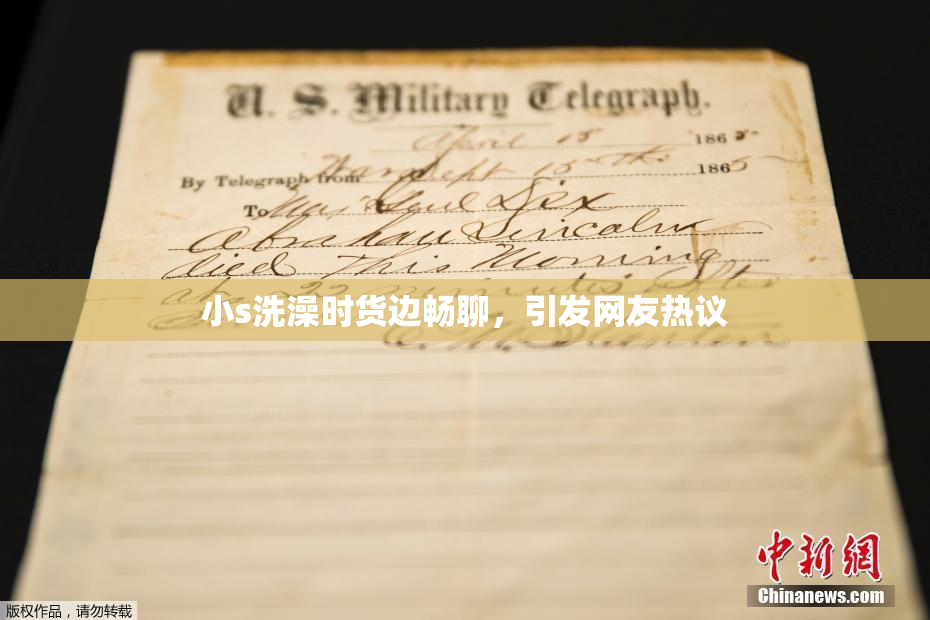 U. S. Military Telegraph.
April 15 1865
By Telegraph from War Dept 15th 1865
To Maj Genl Dix
Abraham Lincoln
died This Morning
at 22 minutes after
小s洗澡时货边畅聊，引发网友热议
中新网
Chinanews.com
版权作品，请勿转载